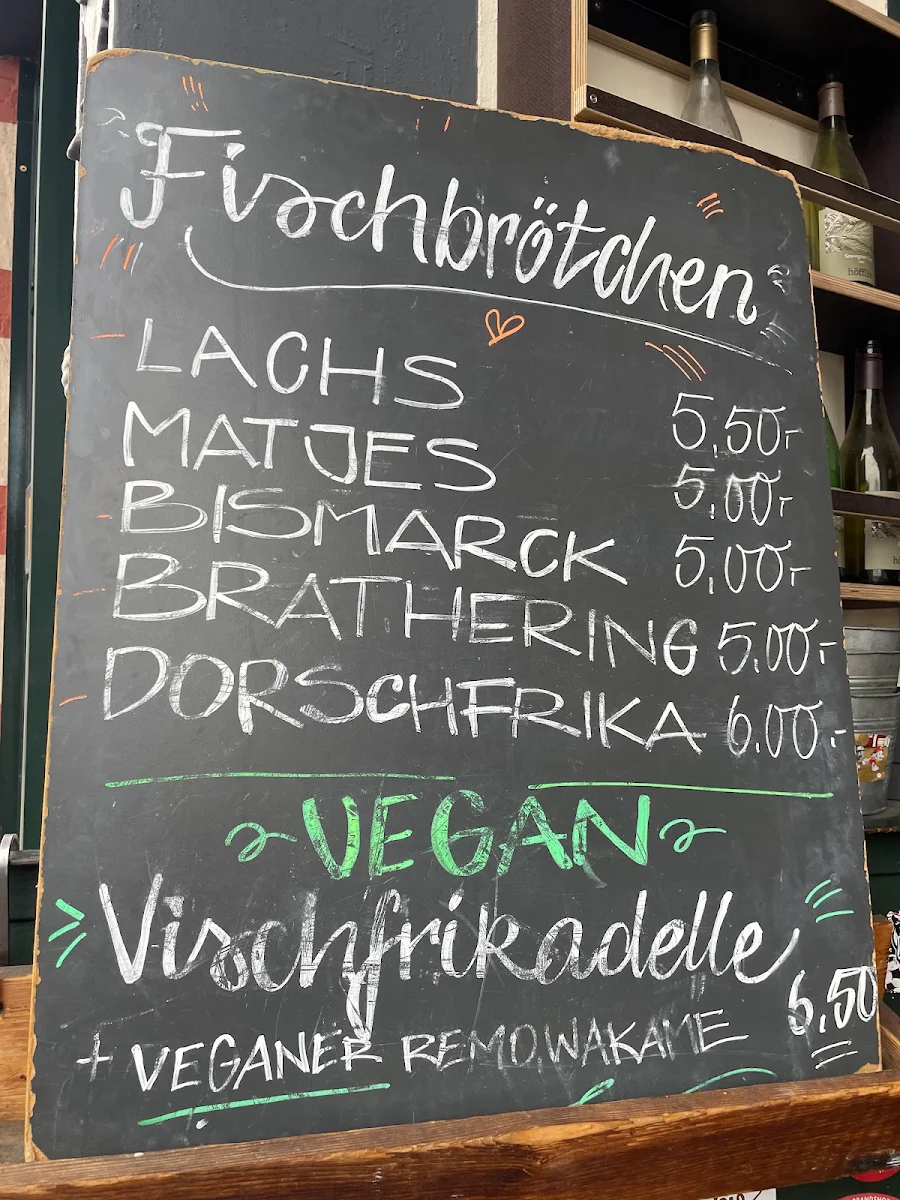 Fischbrötchen
LACHS 5,50,-
MATJES 5,00,-
BISMARCK 5,00,-
BRATHERING 5.00,-
DORSCHFRIKA 6.00,-
VEGAN
Vischfrikadelle
6,50
+ VEGANER REMO, WAKAME
höfflin